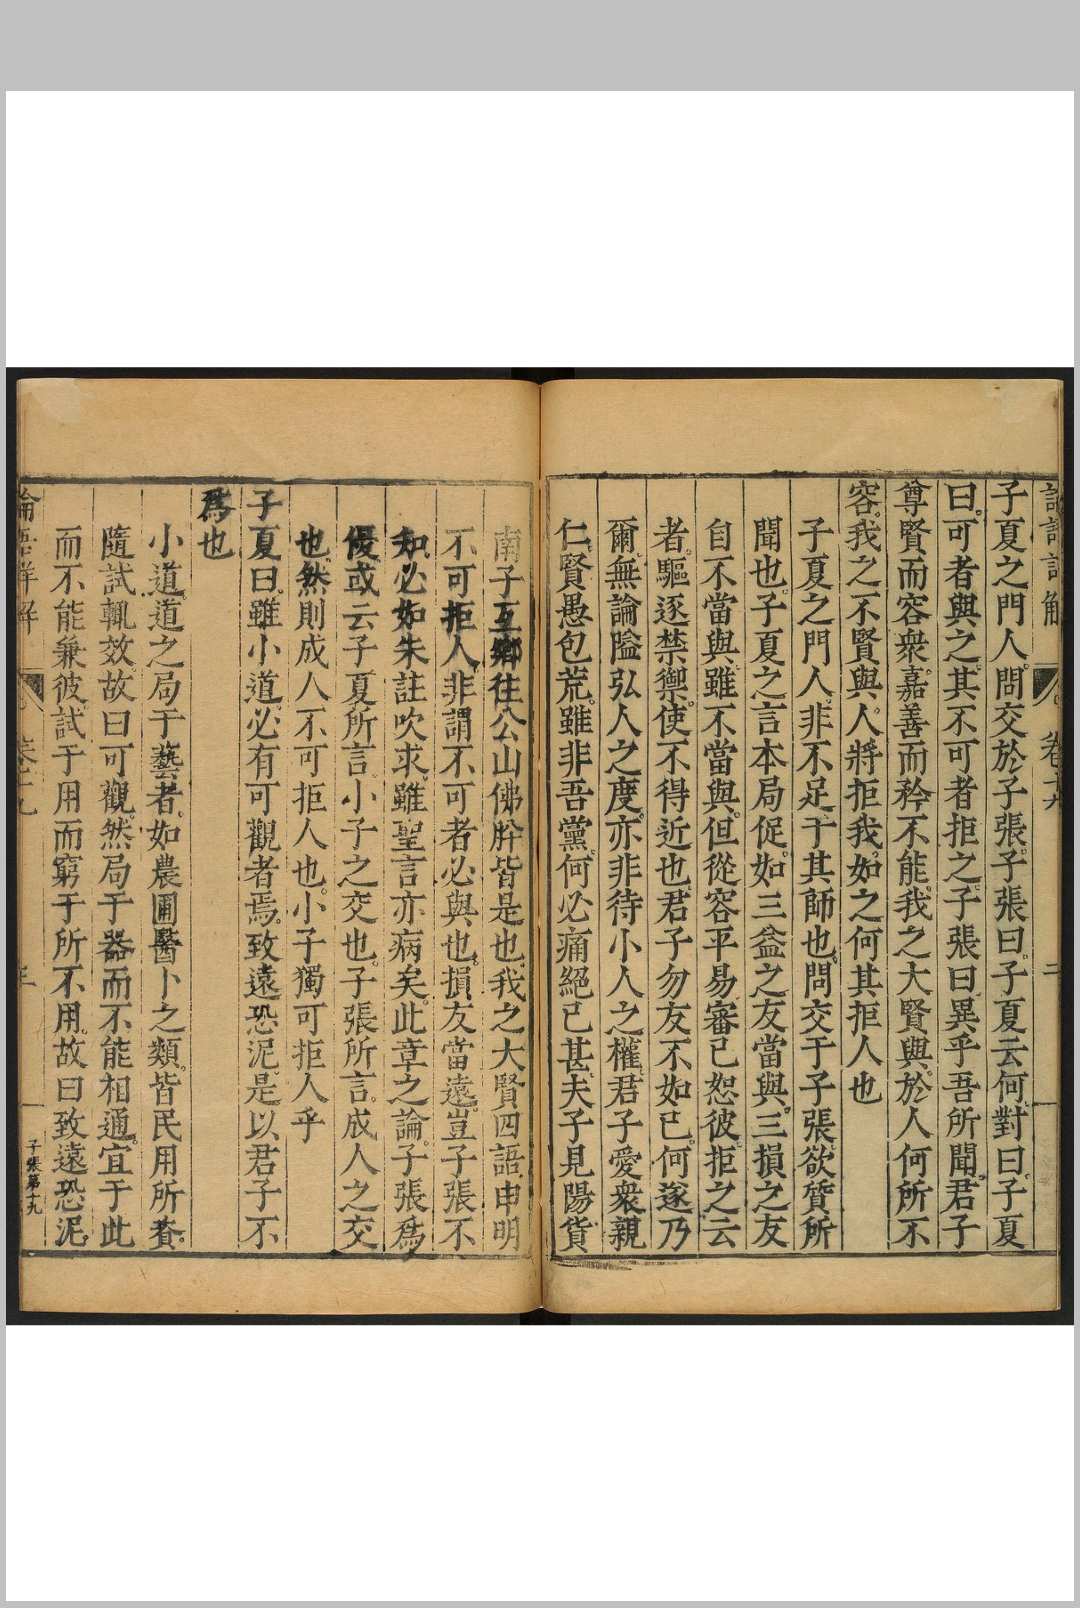 論語詳解 卷十九 二
子夏之門人問交於子張子張曰子夏云何對曰子夏
曰可者與之其不可者拒之子張曰異乎吾所聞君子
尊賢而容衆嘉善而矜不能我之大賢與於人何所不
容我之不賢與人將拒我如之何其拒人也
子夏之門人非不足于其師也問交于子張欲質所
聞也子夏之言本局促如三益之友當與三損之友
自不當與雖不當與但從容平易審己恕彼拒之云
者驅逐禁禦使不得近也君子勿友不如已何遂乃
爾無論隘弘人之度亦非待小人之權君子愛衆親
仁賢愚包荒雖非吾黨何必痛絕已甚夫子見陽貨
南子互鄉往公山佛肸皆是也我之大賢四語申明
不可拒人非謂不可者必與也損友當遠豈子張不
知必如朱註吹求雖聖言亦病矣此章之論子張爲
優或云子夏所言小子之交也子張所言成人之交
也然則成人不可拒人也小子獨可拒人乎
子夏曰雖小道必有可觀者焉致遠恐泥是以君子不
爲也
小道道之局于藝者如農圃醫卜之類皆民用所資
隨試輒效故曰可觀然局于器而不能相通宜于此
而不能兼彼試于用而窮于所不用故曰致遠恐泥
論語詳解 卷十九 子張第十九